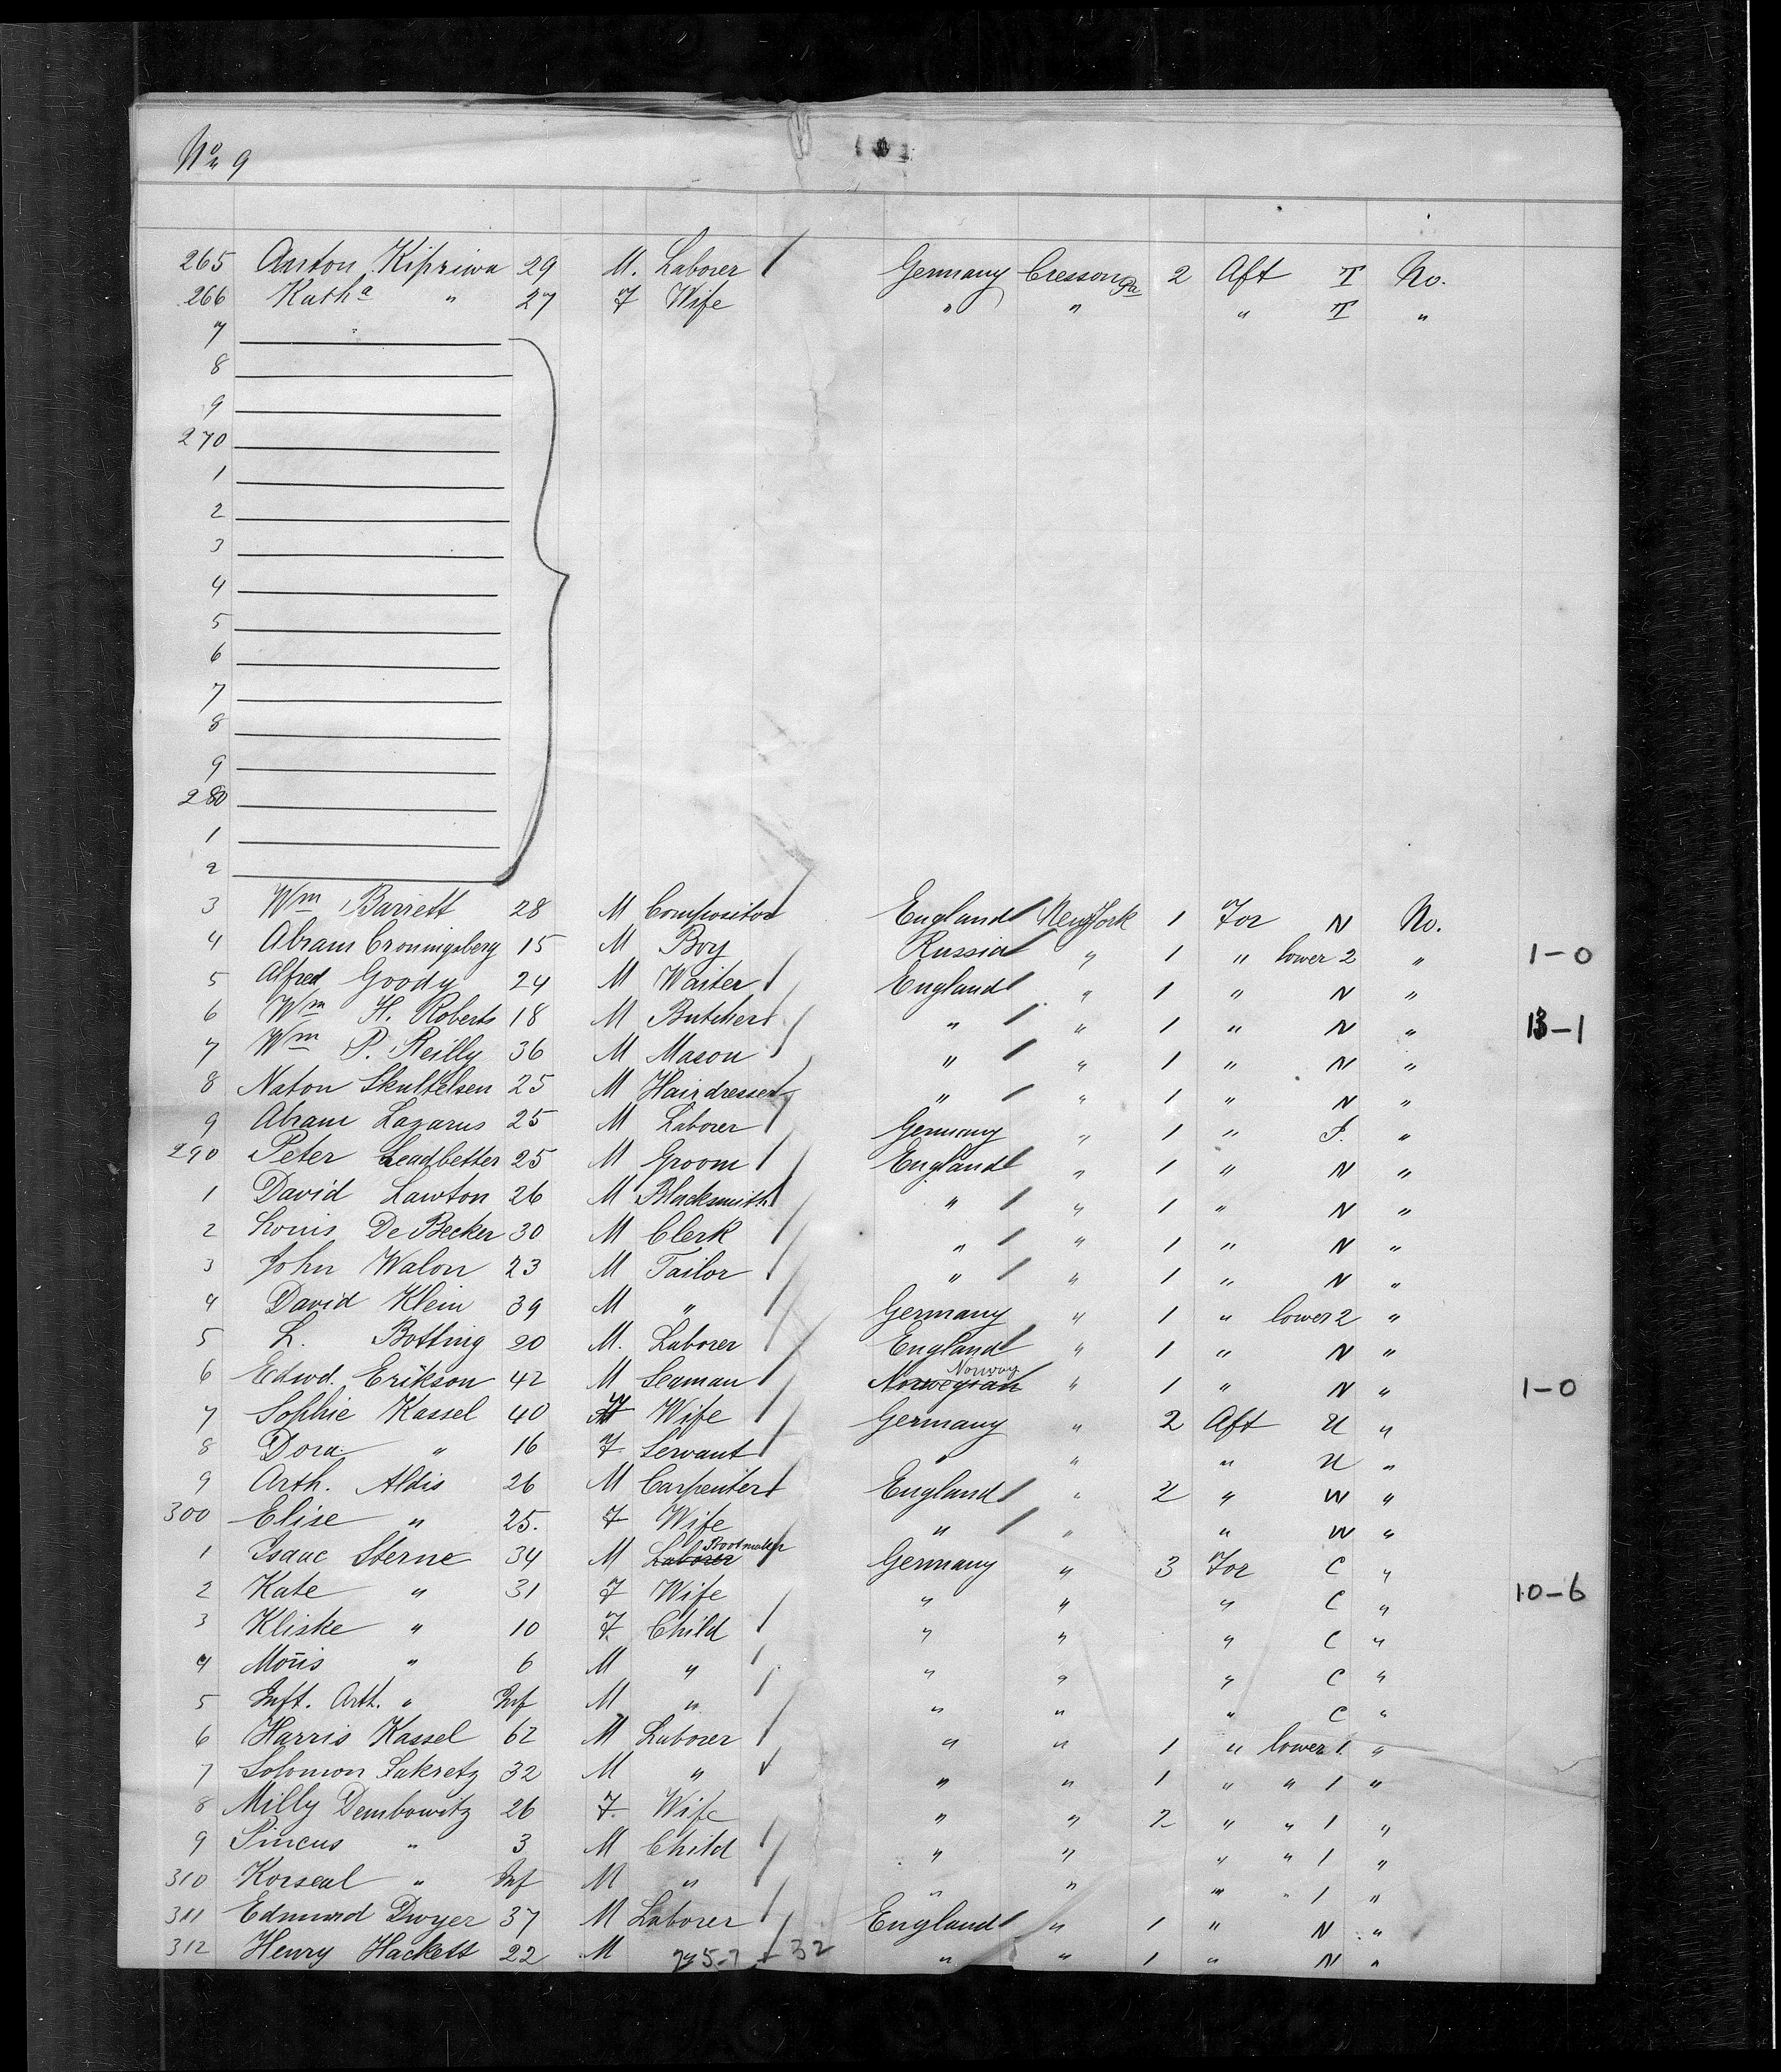 No. 9
265 Anton Kipriwa 29 M. Laborer Germany Cresson Pa 2 Aft T No.
266 Kath a " 27 F Wife " " " T "
7
8
9
270
1
2
3
4
5
6
7
8
9
280
1
2
3 Wm Barrett 28 M Compositor England New York 1 For N No.
4 Abram Croningsberg 15 M Boy Russia " 1 " lower 2 " 1-0
5 Alfred Goody 24 M Waiter England " 1 " N "
6 Wm H. Roberts 18 M Butcher " " 1 " N " 13-1
7 Wm P. Reilly 36 M Mason " " 1 " N "
8 Naton Skuttelsen 25 M Hairdresser " " 1 " N "
9 Abram Lazarus 25 M Laborer Germany " 1 " "
290 Peter Leadbetter 25 M Groom England " 1 " N "
1 David Lawton 26 M Blacksmith " " 1 " N "
2 Louis De Becker 30 M Clerk " " 1 " N "
3 John Walon 23 M Tailor " " 1 " N "
4 David Klein 39 M " Germany " 1 " lower 2 "
5 L. Botting 20 M. Laborer England " 1 " N "
6 Edwd. Erikson 42 M Seaman Norwegian Norway " 1 " N " 1-0
7 Sophie Kassel 40 F Wife Germany " 2 Aft U "
8 Dora " 16 F Servant " " " U "
9 Arth. Aldis 26 M Carpenter England " 2 " W "
300 Elise " 25. F Wife " " " W "
1 Isaac Sterne 34 M Laborer Bootmaker Germany " 3 For C "
2 Kate " 31 F Wife " " " C " 10-6
3 Kliske " 10 F. Child " " " C "
4 Moris " 6 M " " " " C "
5 Inft. Arth. " Inf M " " " " C "
6 Harris Kassel 62 M Laborer " " 1 " lower 1. "
7 Solomon Sakretz 32 M " " " 1 " " 1 "
8 Milly Dembowitz 26 F. Wife " " 2 " " 1 "
9 Pincus " 3 M Child " " " " 1 "
310 Korseal " Inf M " " " " " 1 "
311 Edmund Dwyer 37 M Laborer England " 1 " N "
312 Henry Hackett 22 M " " 1 " N "
32